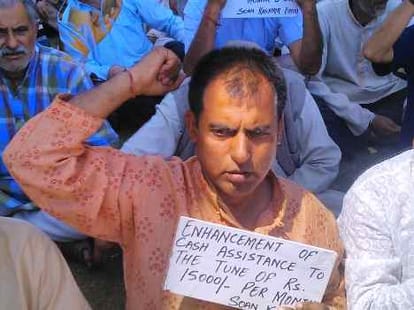 SOAN KASHMIR FRONT
SOAN KASHMIR
ENHANCEMENT OF
CASH ASSISTANCE TO
THE TUNE OF RS.
15000/- PER MONTH
SOAN K